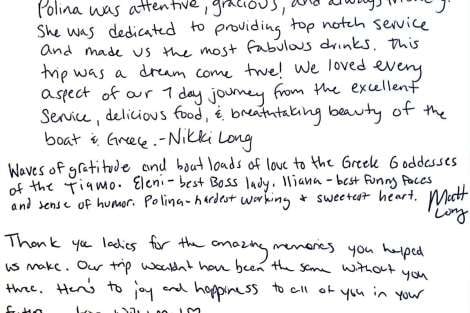 Polina was attentive, gracious, and always friendly.
She was dedicated to providing top notch service
and made us the most fabulous drinks. This
trip was a dream come true! We loved every
aspect of our 7 day journey from the excellent
service, delicious food, & breathtaking beauty of the
boat & Greece. - Nikki Long
Waves of gratitude and boat loads of love to the Greek Goddesses
of the Tiamo. Eleni - best Boss lady. Iliana - best funny faces
and sense of humor. Polina - hardest working + sweetest heart. Matt
Long
Thank you ladies for the amazing memories you helped
us make. Our trip wouldn't have been the same without you
three. Here's to joy and happiness to all of you in your